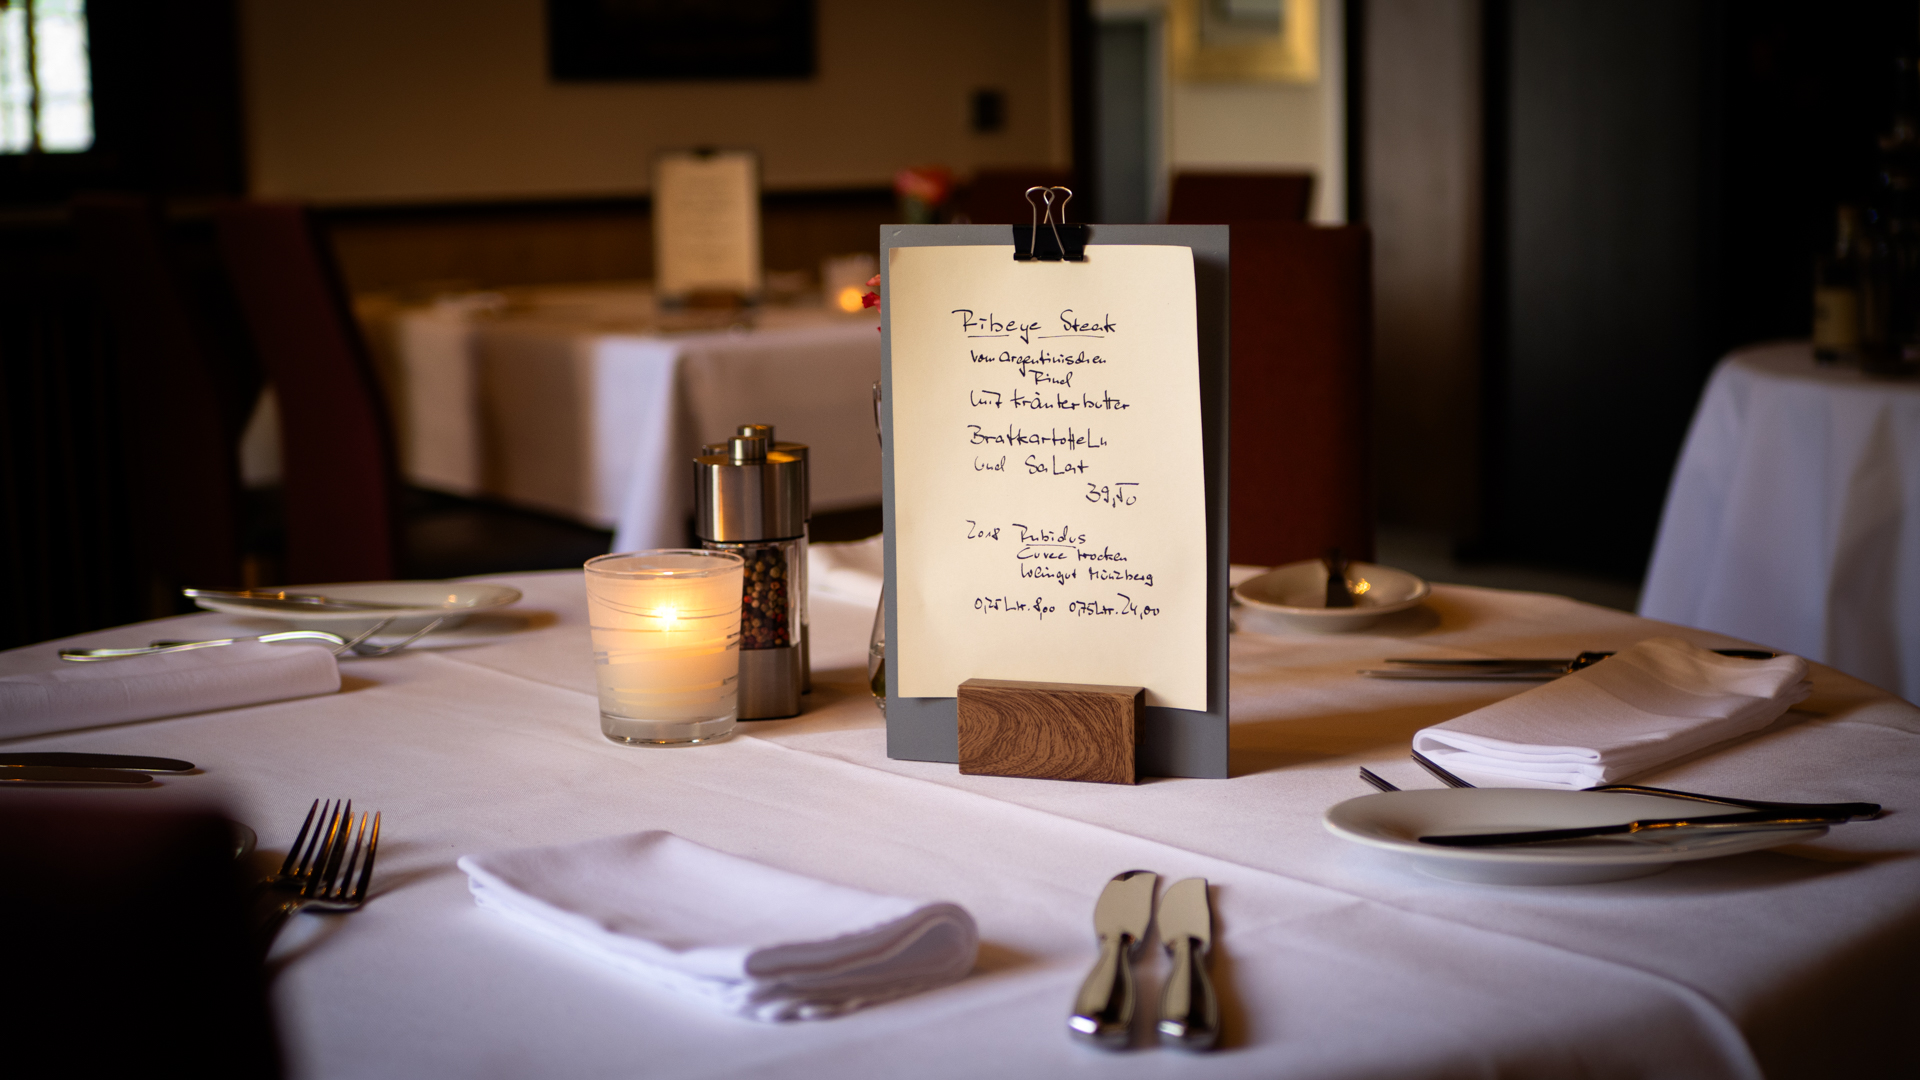 Ribeye Steak
vom Argentinischen
Rind
mit Kräuterbutter
Bratkartoffeln
und Salat
39,50
2018 Rubidus
Cuvee trocken
Weingut Münzberg
0,25 Ltr. 8,00 0,75 Ltr. 24,00